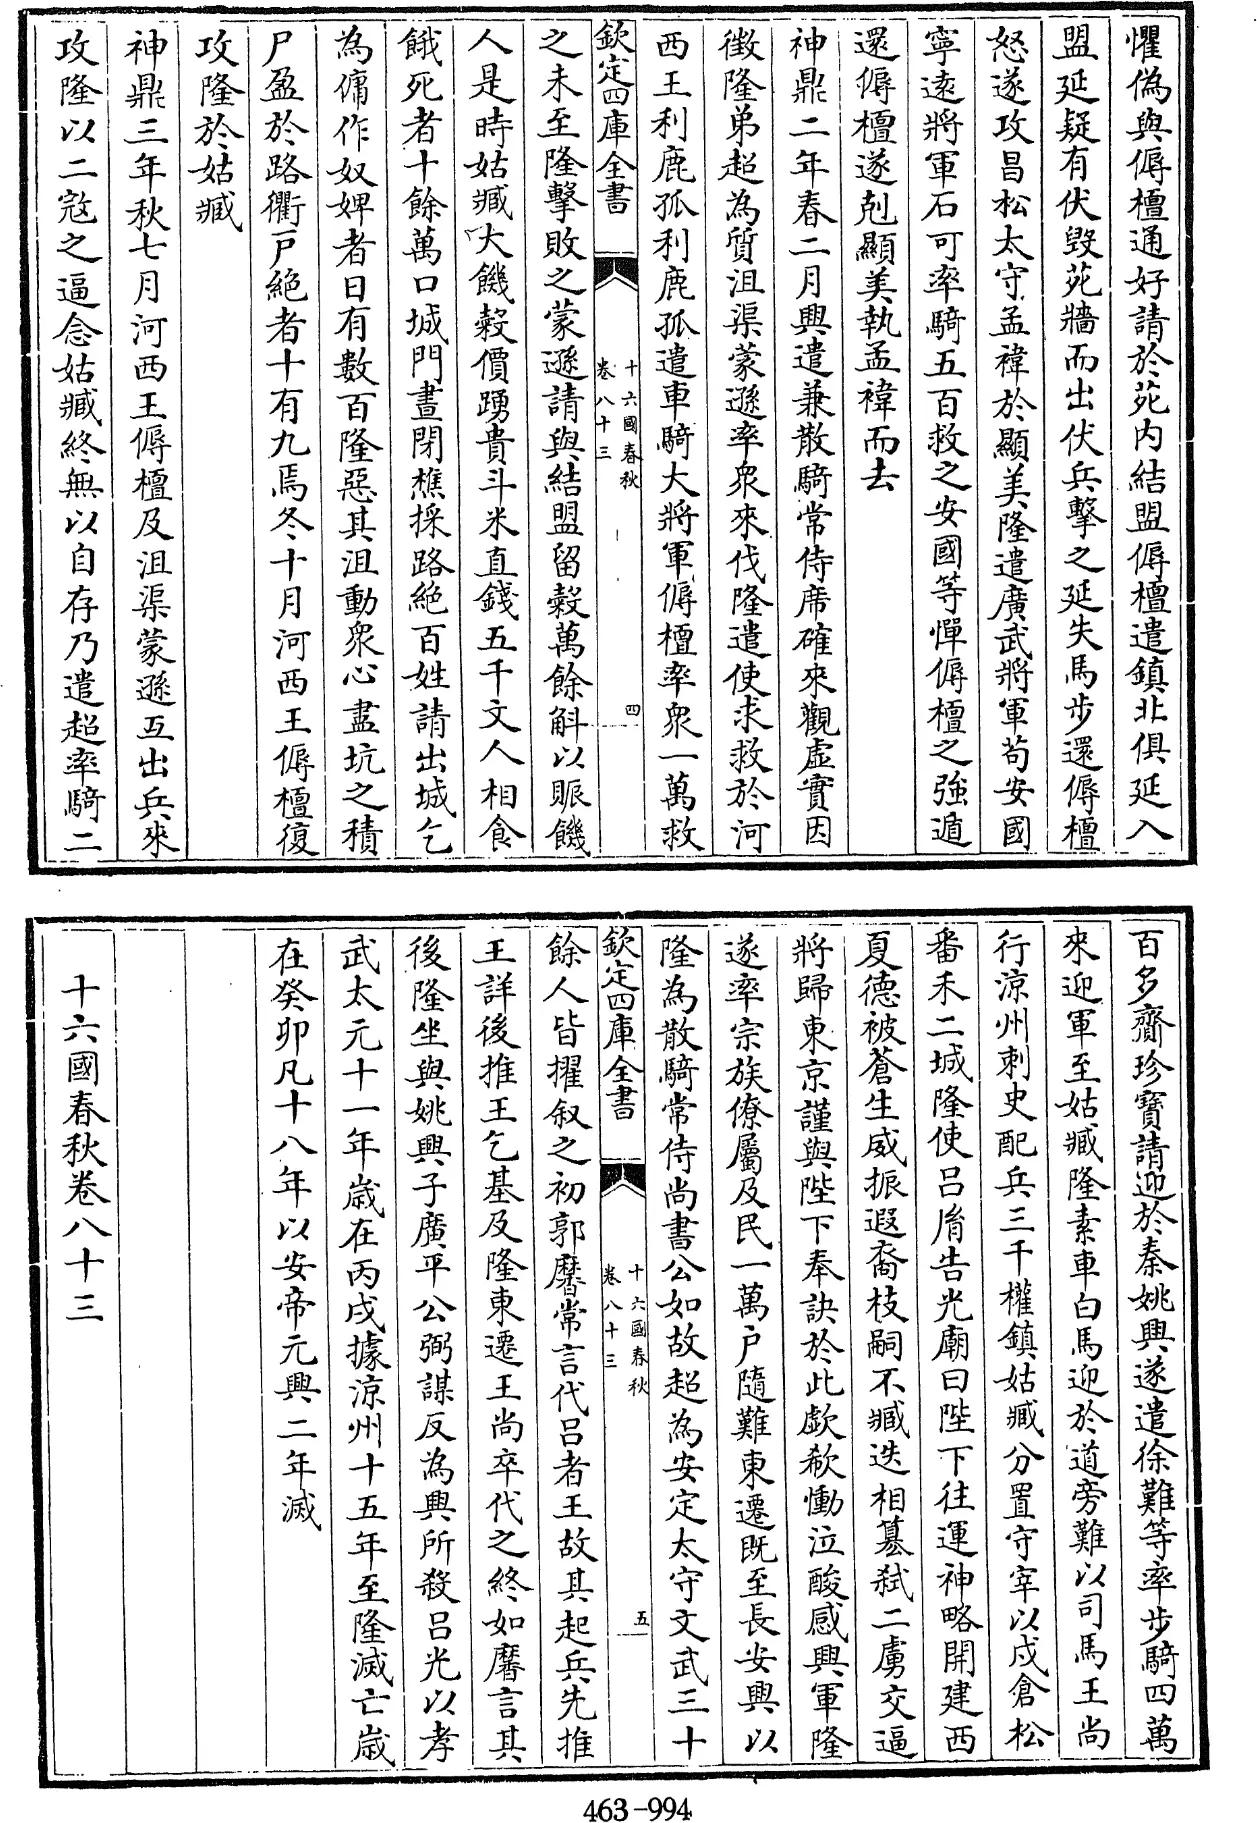 懼偽與傉檀通好請於苑内結盟傉檀遣鎮北俱延入
盟延疑有伏毀苑牆而出伏兵擊之延失馬步還傉檀
怒遂攻昌松太守孟禕於顯美隆遣廣武將軍茍安國
寧遠將軍石可率騎五百救之安國等憚傉檀之強遁
還傉檀遂剋顯美執孟禕而去
神鼎二年春二月興遣兼散騎常侍席確來觀虛實因
徵隆弟超為質沮渠蒙遜率衆來伐隆遣使求救於河
西王利鹿孤利鹿孤遣車騎大將軍傉檀率衆一萬救
欽定四庫全書
十六國春秋
卷八十三
四
之未至隆擊敗之蒙遜請與結盟留穀萬餘斛以賑饑
人是時姑臧大饑穀價踴貴斗米直錢五千文人相食
餓死者十餘萬口城門晝閉樵採路絶百姓請出城乞
為傭作奴婢者日有數百隆惡其沮動衆心盡坑之積
尸盈於路衢户絶者十有九焉冬十月河西王傉檀復
攻隆於姑臧
神鼎三年秋七月河西王傉檀及沮渠蒙遜互出兵來
攻隆以二寇之逼念姑臧終無以自存乃遣超率騎二
百多齎珍寶請迎於秦姚興遂遣徐難等率步騎四萬
來迎軍至姑臧隆素車白馬迎於道旁難以司馬王尚
行涼州刺史配兵三千權鎮姑臧分置守宰以戍倉松
番禾二城隆使吕胤告光廟曰陛下往運神略開建西
夏德被蒼生威振遐裔枝嗣不臧迭相簒弑二虜交逼
將歸東京謹與陛下奉訣於此歔欷慟泣酸感興軍隆
遂率宗族僚屬及民一萬户隨難東遷既至長安興以
隆為散騎常侍尚書公如故超為安定太守文武三十
欽定四庫全書
十六國春秋
卷八十三
五
餘人皆擢叙之初郭黁常言代吕者王故其起兵先推
王詳後推王乞基及隆東遷王尚卒代之終如黁言其
後隆坐與姚興子廣平公弼謀反為興所殺吕光以孝
武太元十一年歲在丙戌據涼州十五年至隆滅亡歲
在癸卯凡十八年以安帝元興二年滅
十六國春秋卷八十三
463-994